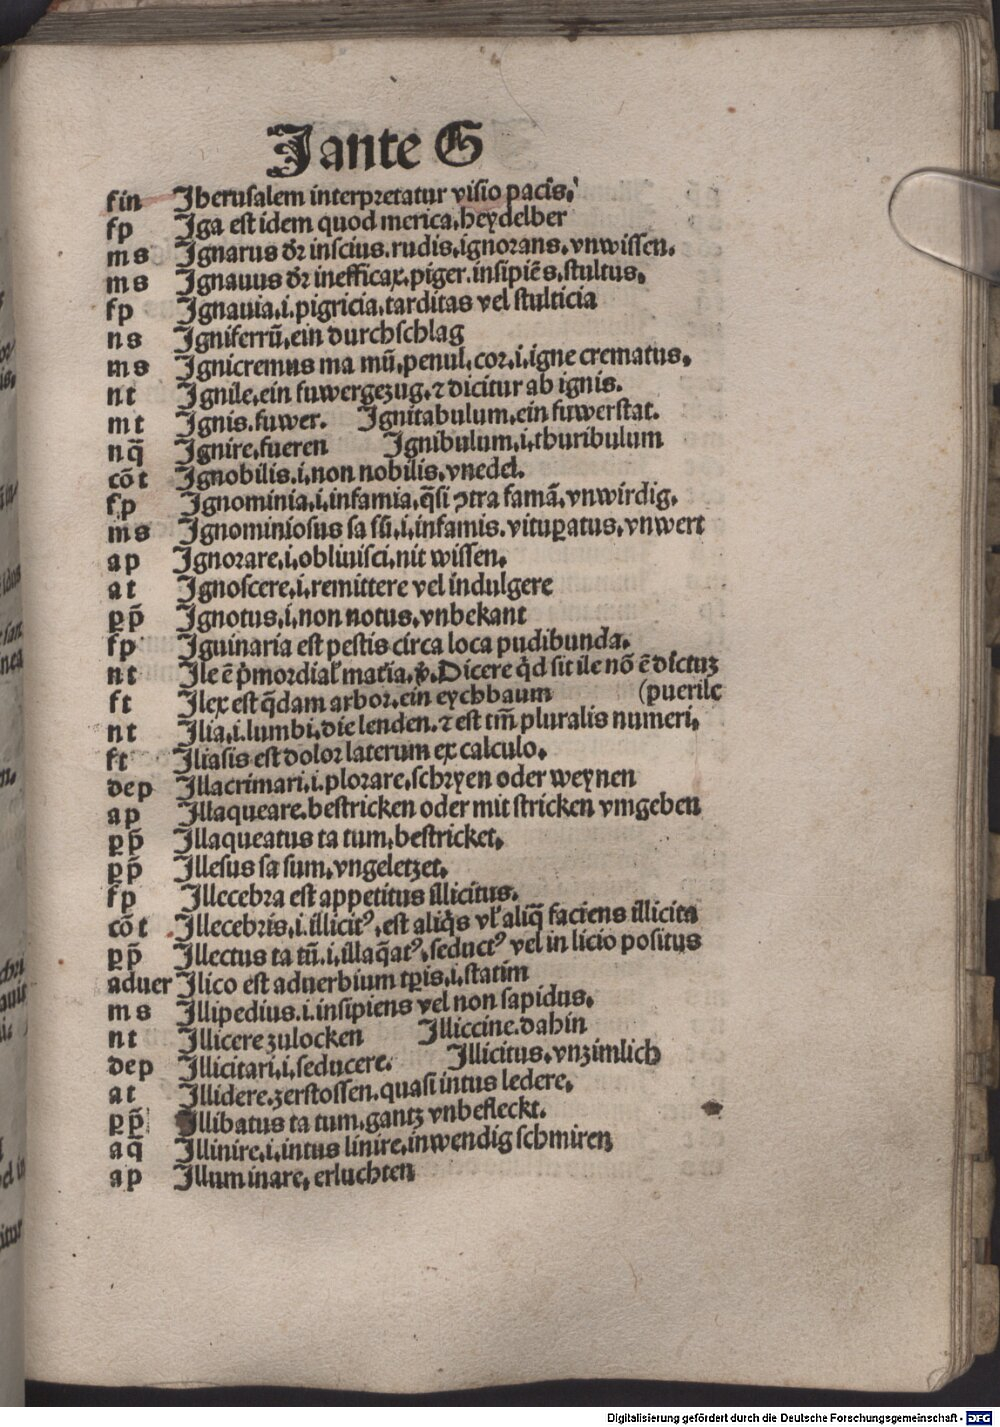 Jante G
fin Jherusalem interpretatur visio pacis.
fp Jga est idem quod merica.heydelber
ms Jgnarus dr̄ inscius.rudis.ignorans.vnwissen.
ms Jgnauus dr̄ inefficax.piger.insipiēs.stultus.
fp Jgnauia.i.pigricia.tarditas vel stulticia
ns Jgniferrū.ein durchschlag
ms Jgnicremus ma mū.penul.cor.i.igne crematus.
nt Jgnile.ein fuwergezug.⁊ dicitur ab ignis.
mt Jgnis.fuwer. Jgnitabulum.ein fuwerstat.
nq̄ Jgnire.fueren Jgnibulum.i.thuribulum
cōt Jgnobilis.i.non nobilis.vnedel.
fp Jgnominia.i.infamia.q̄si ↄtra famā.vnwirdig.
ms Jgnominiosus sa sū.i.infamis.vituꝑatus.vnwert
ap Jgnorare.i.obliuisci.nit wissen.
at Jgnoscere.i.remittere vel indulgere
ꝑp̄ Jgnotus.i.non notus.vnbekant
fp Jguinaria est pestis circa loca pudibunda.
nt Jle ē p̄mordial' mat'ia.ꝟ.Dicere q̄d sit ile nō ē dictuꝫ
ft Jlex est q̄dam arbor.ein eychbaum (puerile
nt Jlia.i.lumbi.die lenden.⁊ est tm̄ pluralis numeri.
ft Jliasis est dolor laterum ex calculo.
dep Jllacrimari.i.plorare.schryen oder weynen
ap Jllaqueare.bestricken oder mit stricken vmgeben
ꝑp̄ Jllaqueatus ta tum.bestricket.
ꝑp̄ Jllesus sa sum.vngeletzet.
fp Jllecebra est appetitus illicitus.
cōt Jllecebris.i.illicitꝰ.est aliq̄s vl' aliq̄ faciens illicita
ꝑp̄ Jllectus ta tū.i.illaq̄atꝰ.seductꝰ vel in licio positus
aduer Jlico est aduerbium tꝑis.i.statim
ms Jllipedius.i.insipiens vel non sapidus.
nt Jllicere zulocken Jlliccine.dahin
dep Jllicitari.i.seducere. Jllicitus.vnzimlich
at Jllidere.zerstossen.quasi intus ledere.
ꝑp̄ Jllibatus ta tum.gantz vnbefleckt.
aq̄ Jllinire.i.intus linire.inwendig schmiren
ap Jlluminare, erluchten
Digitalisierung gefördert durch die Deutsche Forschungsgemeinschaft - DFG